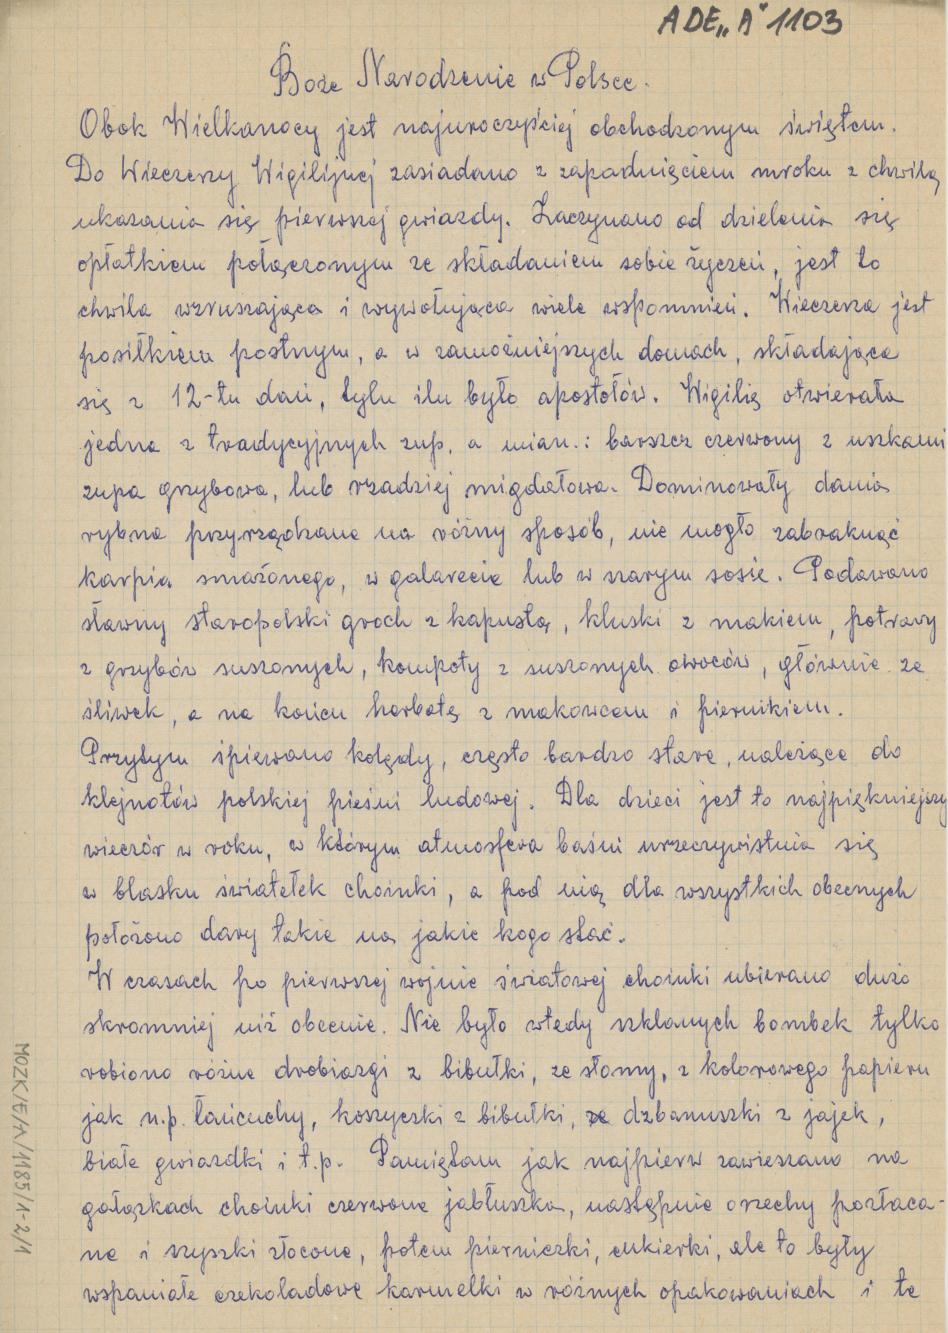 ADE„A" 1103
Boże Narodzenie w Polsce.
Obok Wielkanocy jest najuroczyściej obchodzonym świętem.
Do Wieczerzy Wigilijnej zasiadano z zapadnięciem mroku z chwilą
ukazania się pierwszej gwiazdy. Zaczynano od dzielenia się
opłatkiem połączonym ze składaniem sobie życzeń, jest to
chwila wzruszająca i wywołująca wiele wspomnień. Wieczerza jest
posiłkiem postnym, a w zamożniejszych domach, składająca
się z 12-tu dań, tylu ilu było apostołów. Wigilię otwierała
jedna z tradycyjnych zup, a mian.: barszcz czerwony z uszkami
zupa grzybowa, lub rzadziej migdałowa. Dominowały dania
rybne przyrządzane na różny sposób, nie mogło zabraknąć
karpia smażonego, w galarecie lub w szarym sosie. Podawano
sławny staropolski groch z kapustą, kluski z makiem, potrawy
z grzybów suszonych, kompoty z suszonych owoców, głównie ze
śliwek, a na końcu herbatę z makowcem i piernikiem.
Przytym śpiewano kolędy, często bardzo stare, należące do
klejnotów polskiej pieśni ludowej. Dla dzieci jest to najpiękniejszy
wieczór w roku, w którym atmosfera baśni urzeczywistnia się
w blasku światełek choinki, a pod nią dla wszystkich obecnych
położono dary takie na jakie kogo stać.
W czasach po pierwszej wojnie światowej choinki ubierano dużo
skromniej niż obecnie. Nie było wtedy szklanych bombek tylko
robiono różne drobiazgi z bibułki, ze słomy, z kolorowego papieru
jak n.p. łańcuchy, koszyczki z bibułki, ze dzbanuszki z jajek,
białe gwiazdki i t.p. Pamiętam jak najpierw zawieszano na
gałązkach choinki czerwone jabłuszka, następnie orzechy pozłaca-
ne i szyszki złocone, potem pierniczki, cukierki, ale to były
wspaniałe czekoladowe karmelki w różnych opakowaniach i te
MOZK/E/A/1185/1-2/1